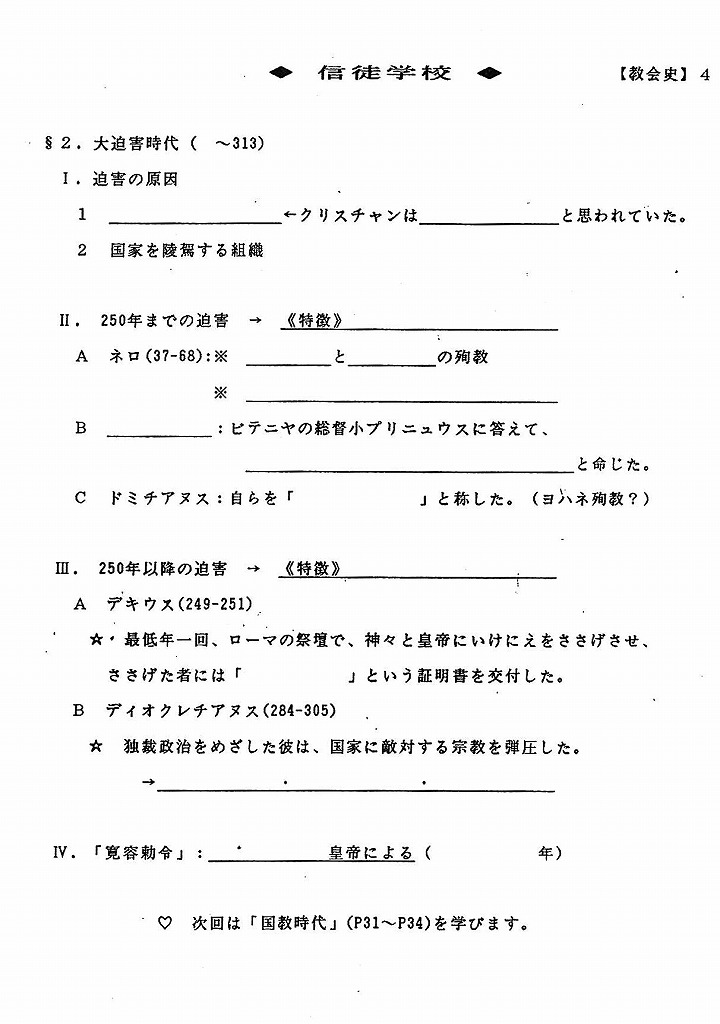 ◆ 信徒学校 ◆ 【教会史】4
§2. 大迫害時代 ( ～313)
Ⅰ. 迫害の原因
1 ____________←クリスチャンは____________と思われていた。
2 国家を陵駕する組織
Ⅱ. 250年までの迫害 → 《特徴》____________
A ネロ(37-68):※ ________と________の殉教
※ ____________
B ________：ビテニヤの総督小プリニュウスに答えて、
____________と命じた。
C ドミチアヌス：自らを「 」と称した。（ヨハネ殉教？）
Ⅲ. 250年以降の迫害 → 《特徴》____________
A デキウス(249-251)
☆・最低年一回、ローマの祭壇で、神々と皇帝にいけにえをささげさせ、
ささげた者には「 」という証明書を交付した。
B ディオクレチアヌス(284-305)
☆ 独裁政治をめざした彼は、国家に敵対する宗教を弾圧した。
→____________
Ⅳ. 「寛容勅令」：________皇帝による（ 年）
♡ 次回は「国教時代」(P31～P34)を学びます。